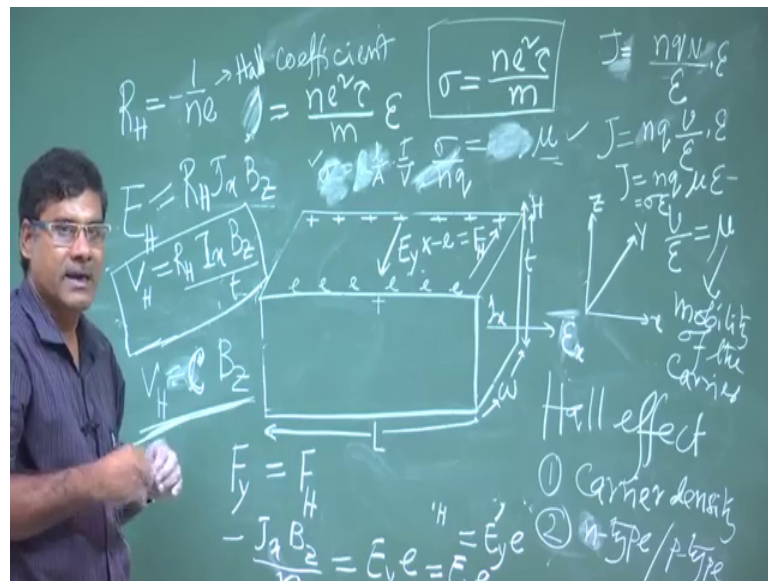 R_H = -1/ne → Hall coefficient
= ne²τ/m ε
σ = ne²τ/m
J = nqv/ε . ε
σ/nq = μ ✓
J = nq v/ε . ε
J = nq μ ε
= σε
v/ε = μ
mobility
of the
carrier
E_H = R_H J_x B_z
V_H = R_H I_x B_z / t
V_H = C B_z
+ + + + + + + +
E_y x-e = E_H
e e e e e e e
+
H
t
J_x
ε_x
w
L
Z
Y
x
F_y = F_H
- J_x B_z / n = E_y e = E e
H = E_y e
Hall effect
① Carrier density
② n-type/p-type